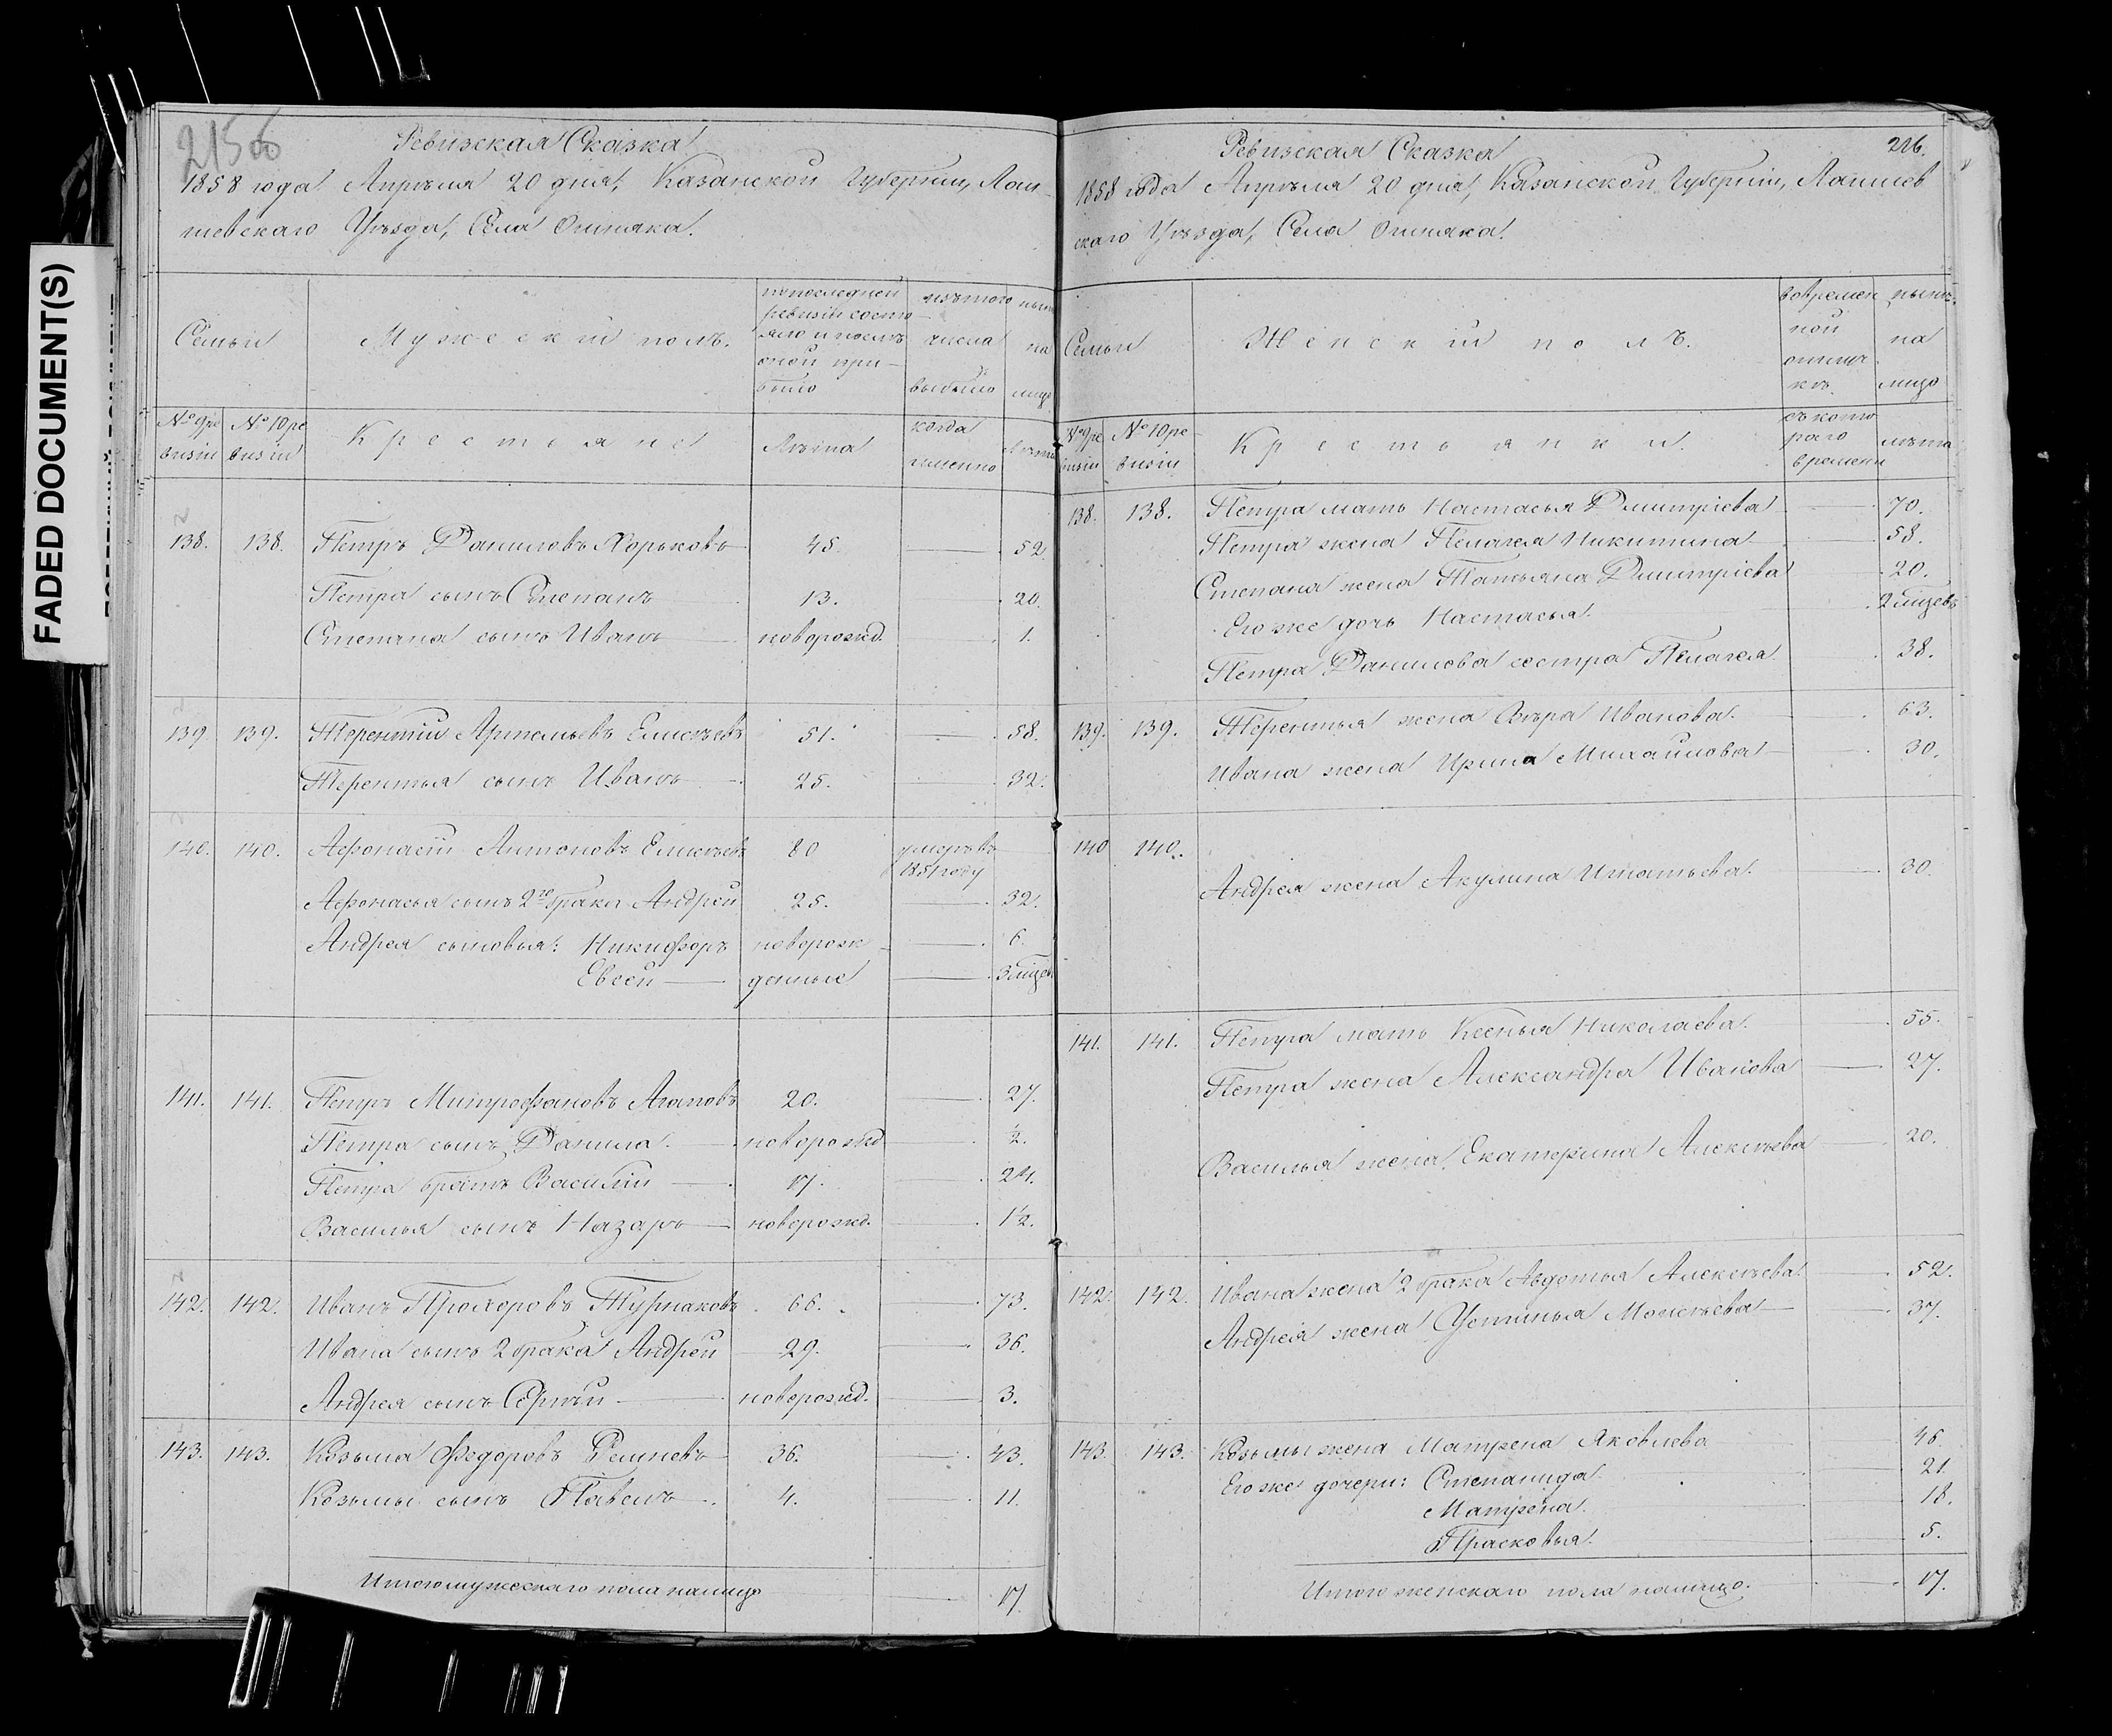 FADED DOCUMENT(S)
Ревизская Сказка
1858 года Апрѣля 20 дня, Казанской Губерніи, Лаи-
шевскаго Уѣзда, Села Ошняка.
Семьи
Мужескій полъ.
по последней
ревизіи состо-
яло и послѣ
оной при-
было
изъ того
числа
выбыло
нынѣ
на
лицо
№ 9 ре
визіи
№ 10 ре
визіи
Крестьяне
Лѣта
когда
именно
Лѣта
138. 138. Петръ Даниловъ Хорьковъ 45. 52
Петра сынъ Степанъ 13. 20.
Степана сынъ Иванъ новорожд. 1.
139 139. Терентій Артемьевъ Елисѣевъ 51. 58.
Терентья сынъ Иванъ 25. 32.
140. 140. Афонасій Антоновъ Елисѣевъ 80 умеръ въ
1851 году
Афонасья сынъ 2го брака Андрей 25. 32.
Андрея сыновья: Никифоръ новорож- 6.
Евсей денные 3 мѣсцев
141. 141. Петръ Митрофановъ Агаповъ 20. 27.
Петра сынъ Данила новорожд ½.
Петра братъ Василій 17. 24.
Василья сынъ Назаръ новорожд. 1½.
142. 142. Иванъ Прохоровъ Турнаковъ 66. 73.
Ивана сынъ 2 брака Андрей 29. 36.
Андрея сынъ Сергѣй новорожд. 3.
143. 143. Козьма Федоровъ 36. 43.
Козьмы сынъ Павелъ 4. 11.
Итого мужескаго пола налицо 17.
216.
Ревизская Сказка
1858 года Апрѣля 20 дня, Казанской Губерніи, Лаишев
скаго Уѣзда, Села Ошняка.
Семьи
Женскій полъ.
во времен
ной
отлуч
кѣ
нынѣ
на
лицо
№ 9 ре
визіи
№ 10 ре
визіи
Крестьянки.
съ кото
раго
времени
лѣта
138. 138. Петра мать Настасья Дмитріева 70.
Петра жена Пелагея Никитина 58.
Степана жена Татьяна Дмитріева 20.
Его же дочь Настасья. 2 мѣсцевъ
Петра Данилова сестра Пелагея 38.
139. 139. Терентья жена Вѣра Иванова. 63.
Ивана жена Ирина Михайлова 30.
140 140. Андрея жена Акулина Игнатьева. 30.
141. 141. Петра мать Ксенья Николаева. 55.
Петра жена Александра Иванова 27.
Василья жена Екатерина Алексѣева 20.
142. 142. Ивана жена 2 брака Авдотья Алексѣева. 52.
Андрея жена Устинья Моисѣева 37.
143. 143. Козьмы жена Матрена Яковлева 46.
Его же дочери: Степанида. 21
Матрена. 18.
Прасковья. 5.
Итого женскаго пола налицо. 17.